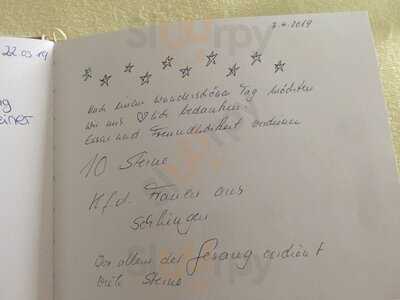 22.03.19
einer
7.4.2019
Nach einem wunderschönen Tag möchten
wir uns ♡lich bedanken.
Essen und Freundlichkeit verdienen
10 Sterne
Kfd. Frauen aus
Vor allem der Gesang verdient
viele Sterne
Sluurpy